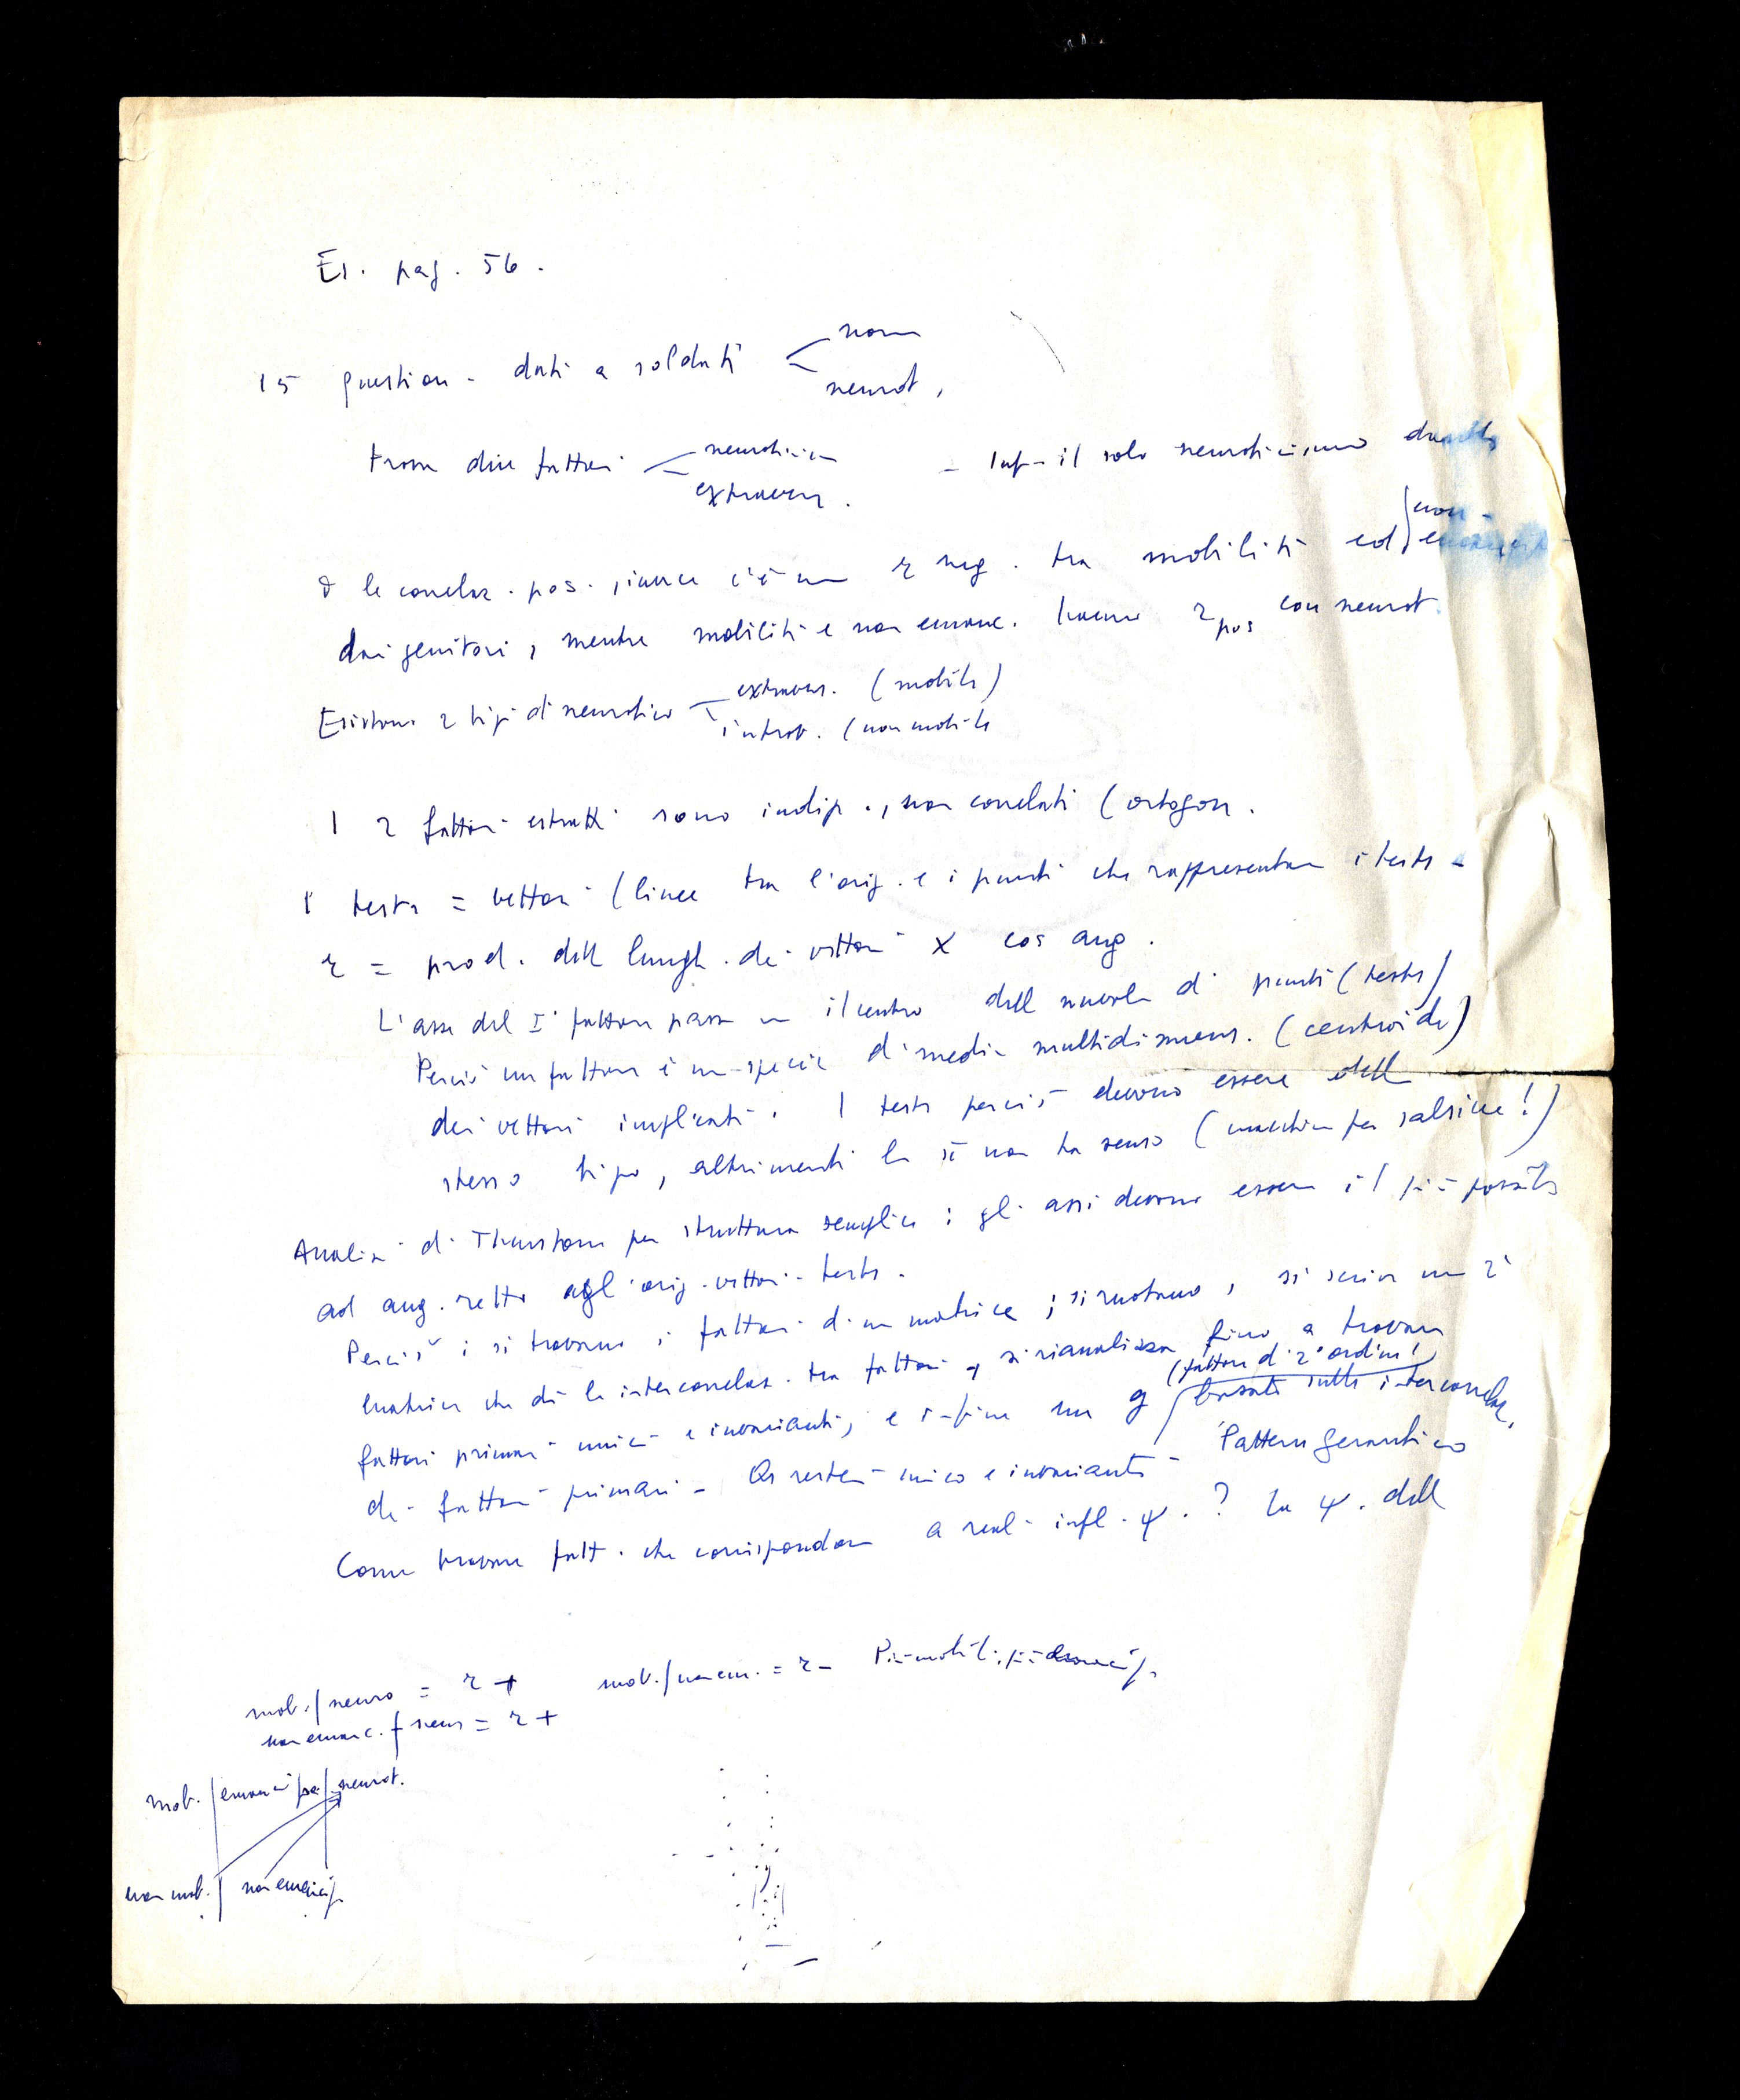 Es. pag. 56.
norm
15 question. dati a soldati
neurot.
neuroticism
Trova due fattori - Inf. il solo neuroticismo
extravers.
non
le correlaz. pos., invece c'è un r neg. tra mobilità ed
dai genitori, mentre mobilità e non emanc. hanno r pos con neurot.
extravers. (mobili)
Esistono 2 tipi di neurotico
introv. (non mobili
I 2 fattori estratti sono indip., non correlati (ortogon.
I tests = vettori (linee tra l'orig. e i punti che rappresentano i tests -
r = prod. dell lungh. dei vettori x cos ang.
L'asse del I° fattore passa in il centro dell nuvola di punti (tests)
Perciò un fattore è una specie di media multidimens. (centroide)
dei vettori implicati. I tests perciò devono essere dello
stesso tipo, altrimenti la non ha senso (macchina per salsicce!)
Analisi di Thurstone per struttura semplice: gli assi devono essere il più possib
ad ang. retto agl orig. vettori-tests.
Perciò: si trovano i fattori d'una matrice; si ruotano, si scrive una 2ª
matrice che dà le intercorrelaz. tra fattori e si rianalizza fino a trovare
(fattore di 2° ordine!
fattori primari unici e invarianti, e infine un g basato sulle intercorrelaz.
dei fattori primari - Qs resterà unico e invariante - Pattern gerarchico
Come trovare fatt. che corrispondano a reali infl. ψ.? La ψ. dell
mob./neuro = r + mob./non em. = r - Più mobili, più emancip.
non emanc. / neur = r +
mob. / emancipa / neurot.
non mob. / non emancip.